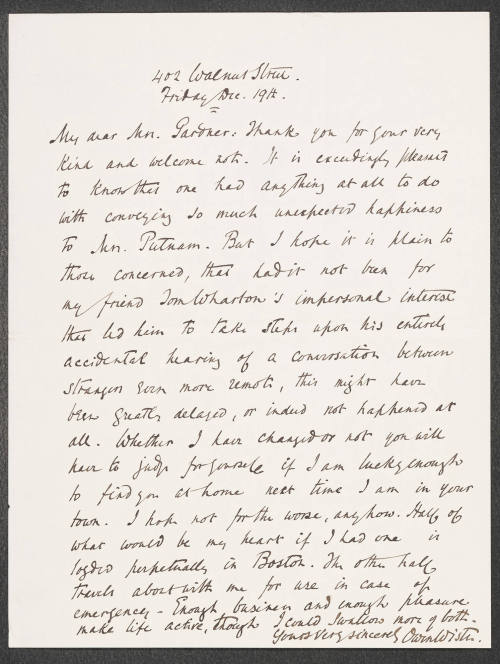 402 Walnut Street.
Friday Dec. 19th.
My dear Mrs. Gardner: Thank you for your very
kind and welcome note. It is exceedingly pleasant
to know that one had anything at all to do
with conveying so much unexpected happiness
to Mrs. Putnam. But I hope it is plain to
those concerned, that had it not been for
my friend Tom Wharton's impersonal interest
that led him to take steps upon his entirely
accidental hearing of a conversation between
strangers even more remote, this might have
been greatly delayed, or indeed not happened at
all. Whether I have changed or not you will
have to judge for yourself if I am lucky enough
to find you at home next time I am in your
town. I hope not for the worse, anyhow. Half of
what would be my heart if I had one is
lodged perpetually in Boston. The other half
travels about with me for use in case of
emergency - Enough business and enough pleasure
make life active, though I could swallow more of both.
Yours very sincerely Owen Wister.